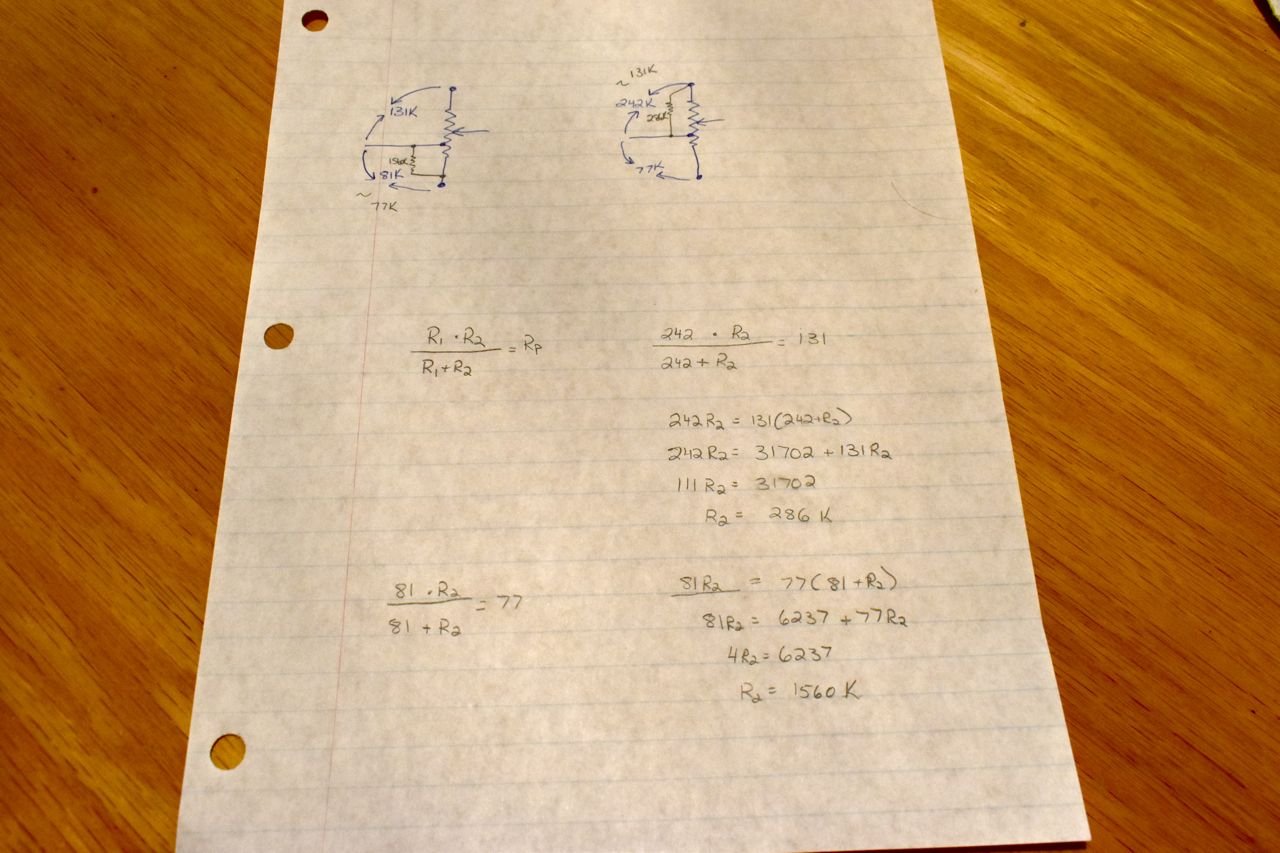 131K
156K
81K
~
77K
~ 131K
242K
286K
77K
R1 · R2
R1+R2
= Rp
242 · R2
242 + R2
= 131
242R2 = 131(242+R2)
242R2 = 31702 + 131R2
111 R2 = 31702
R2 = 286 K
81 · R2
81 + R2
= 77
81R2 = 77(81+R2)
81R2 = 6237 + 77R2
4R2 = 6237
R2 = 1560 K